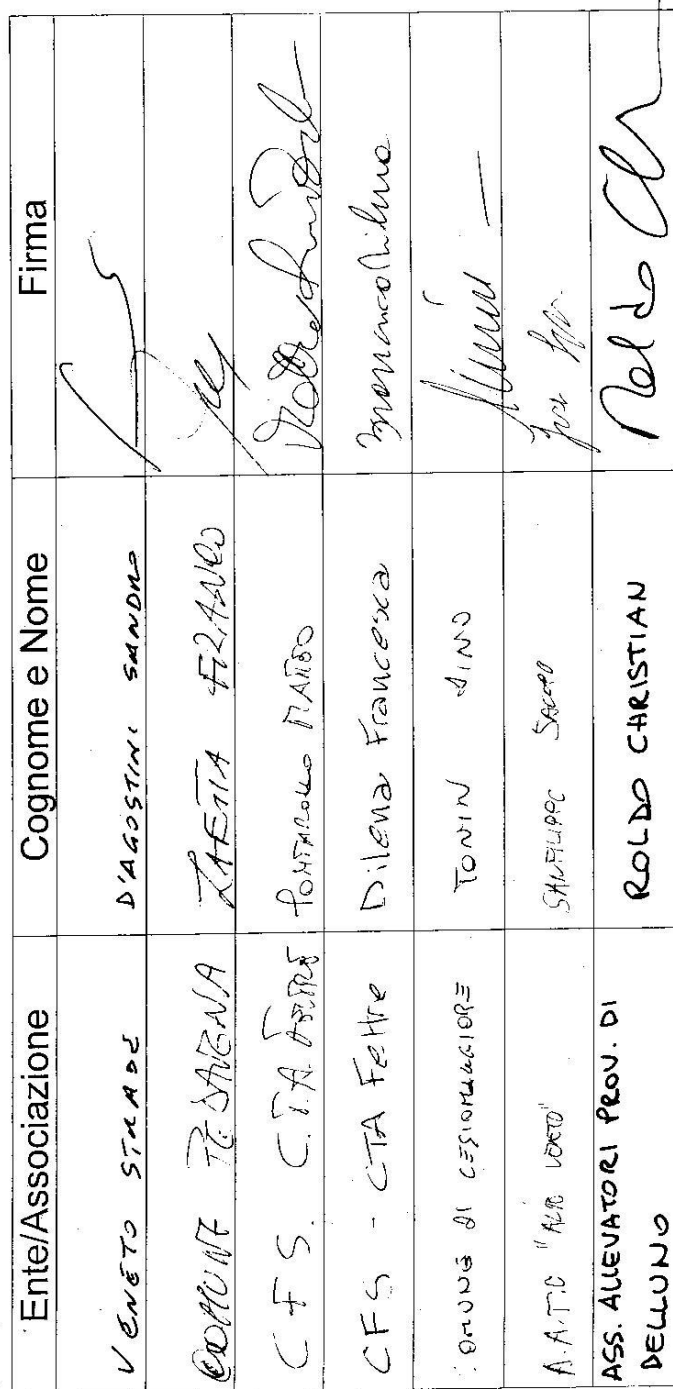 Ente/Associazione Cognome e Nome Firma
VENETO STRADE D'AGOSTINI SANDRO
COMUNE PEDAVENA ZAETTA FRANCO
C F S. C.T.A. FELTRE PONTAROLLO
CFS - CTA Feltre Dilena Francesca
COMUNE DI CESIOMAGGIORE TONIN GINO
A.A.T.O "ALTO VENETO" SANFILIPPO
ASS. ALLEVATORI PROV. DI ROLDO CHRISTIAN Roldo Ch
BELLUNO